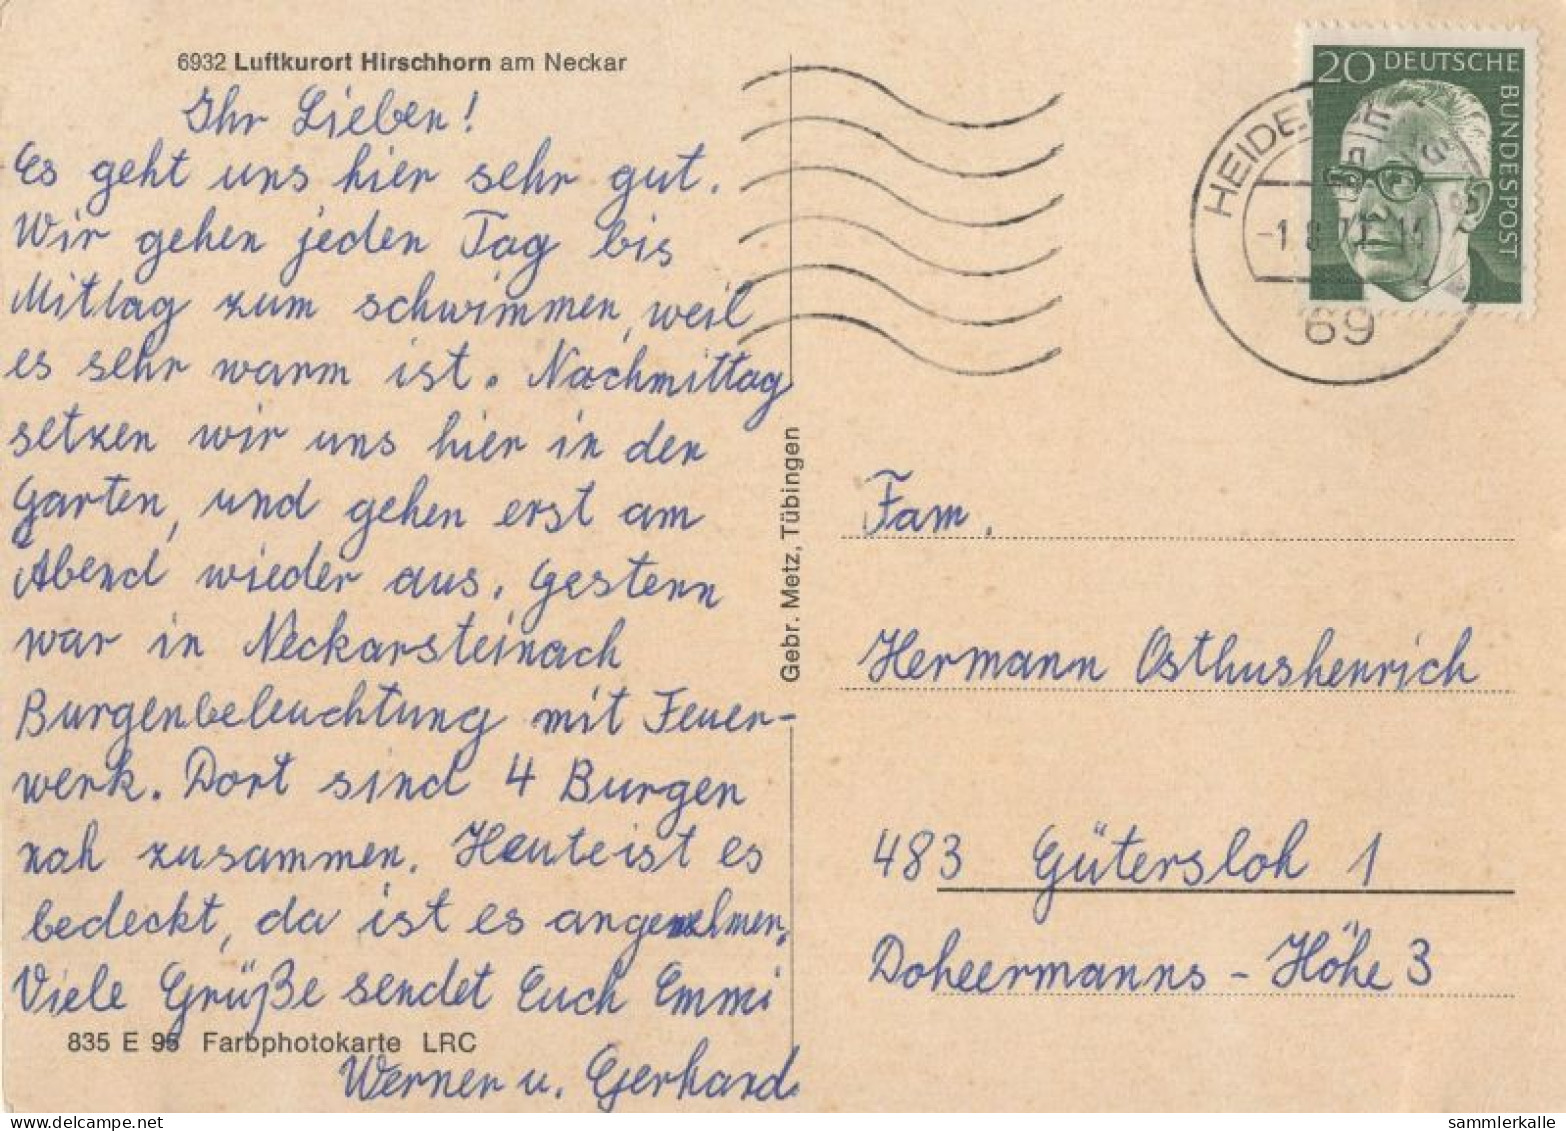 6932 Luftkurort Hirschhorn am Neckar
Ihr Lieben!
Es geht uns hier sehr gut.
Wir gehen jeden Tag bis
Mittag zum schwimmen, weil
es sehr warm ist. Nachmittag
setzen wir uns hier in den
Garten, und gehen erst am
Abend wieder aus. Gestern
war in Neckarsteinach
Burgenbeleuchtung mit Feuer-
werk. Dort sind 4 Burgen
nah zusammen. Heute ist es
bedeckt, da ist es angenehmen.
Viele Grüße sendet Euch Emmi
Werner u. Gerhard
835 E 95 Farbphotokarte LRC
Gebr. Metz, Tübingen
20 DEUTSCHE
BUNDESPOST
69
Fam.
Hermann Osthushenrich
483 Gütersloh 1
Doheermanns - Höhe 3
sammlerkalle